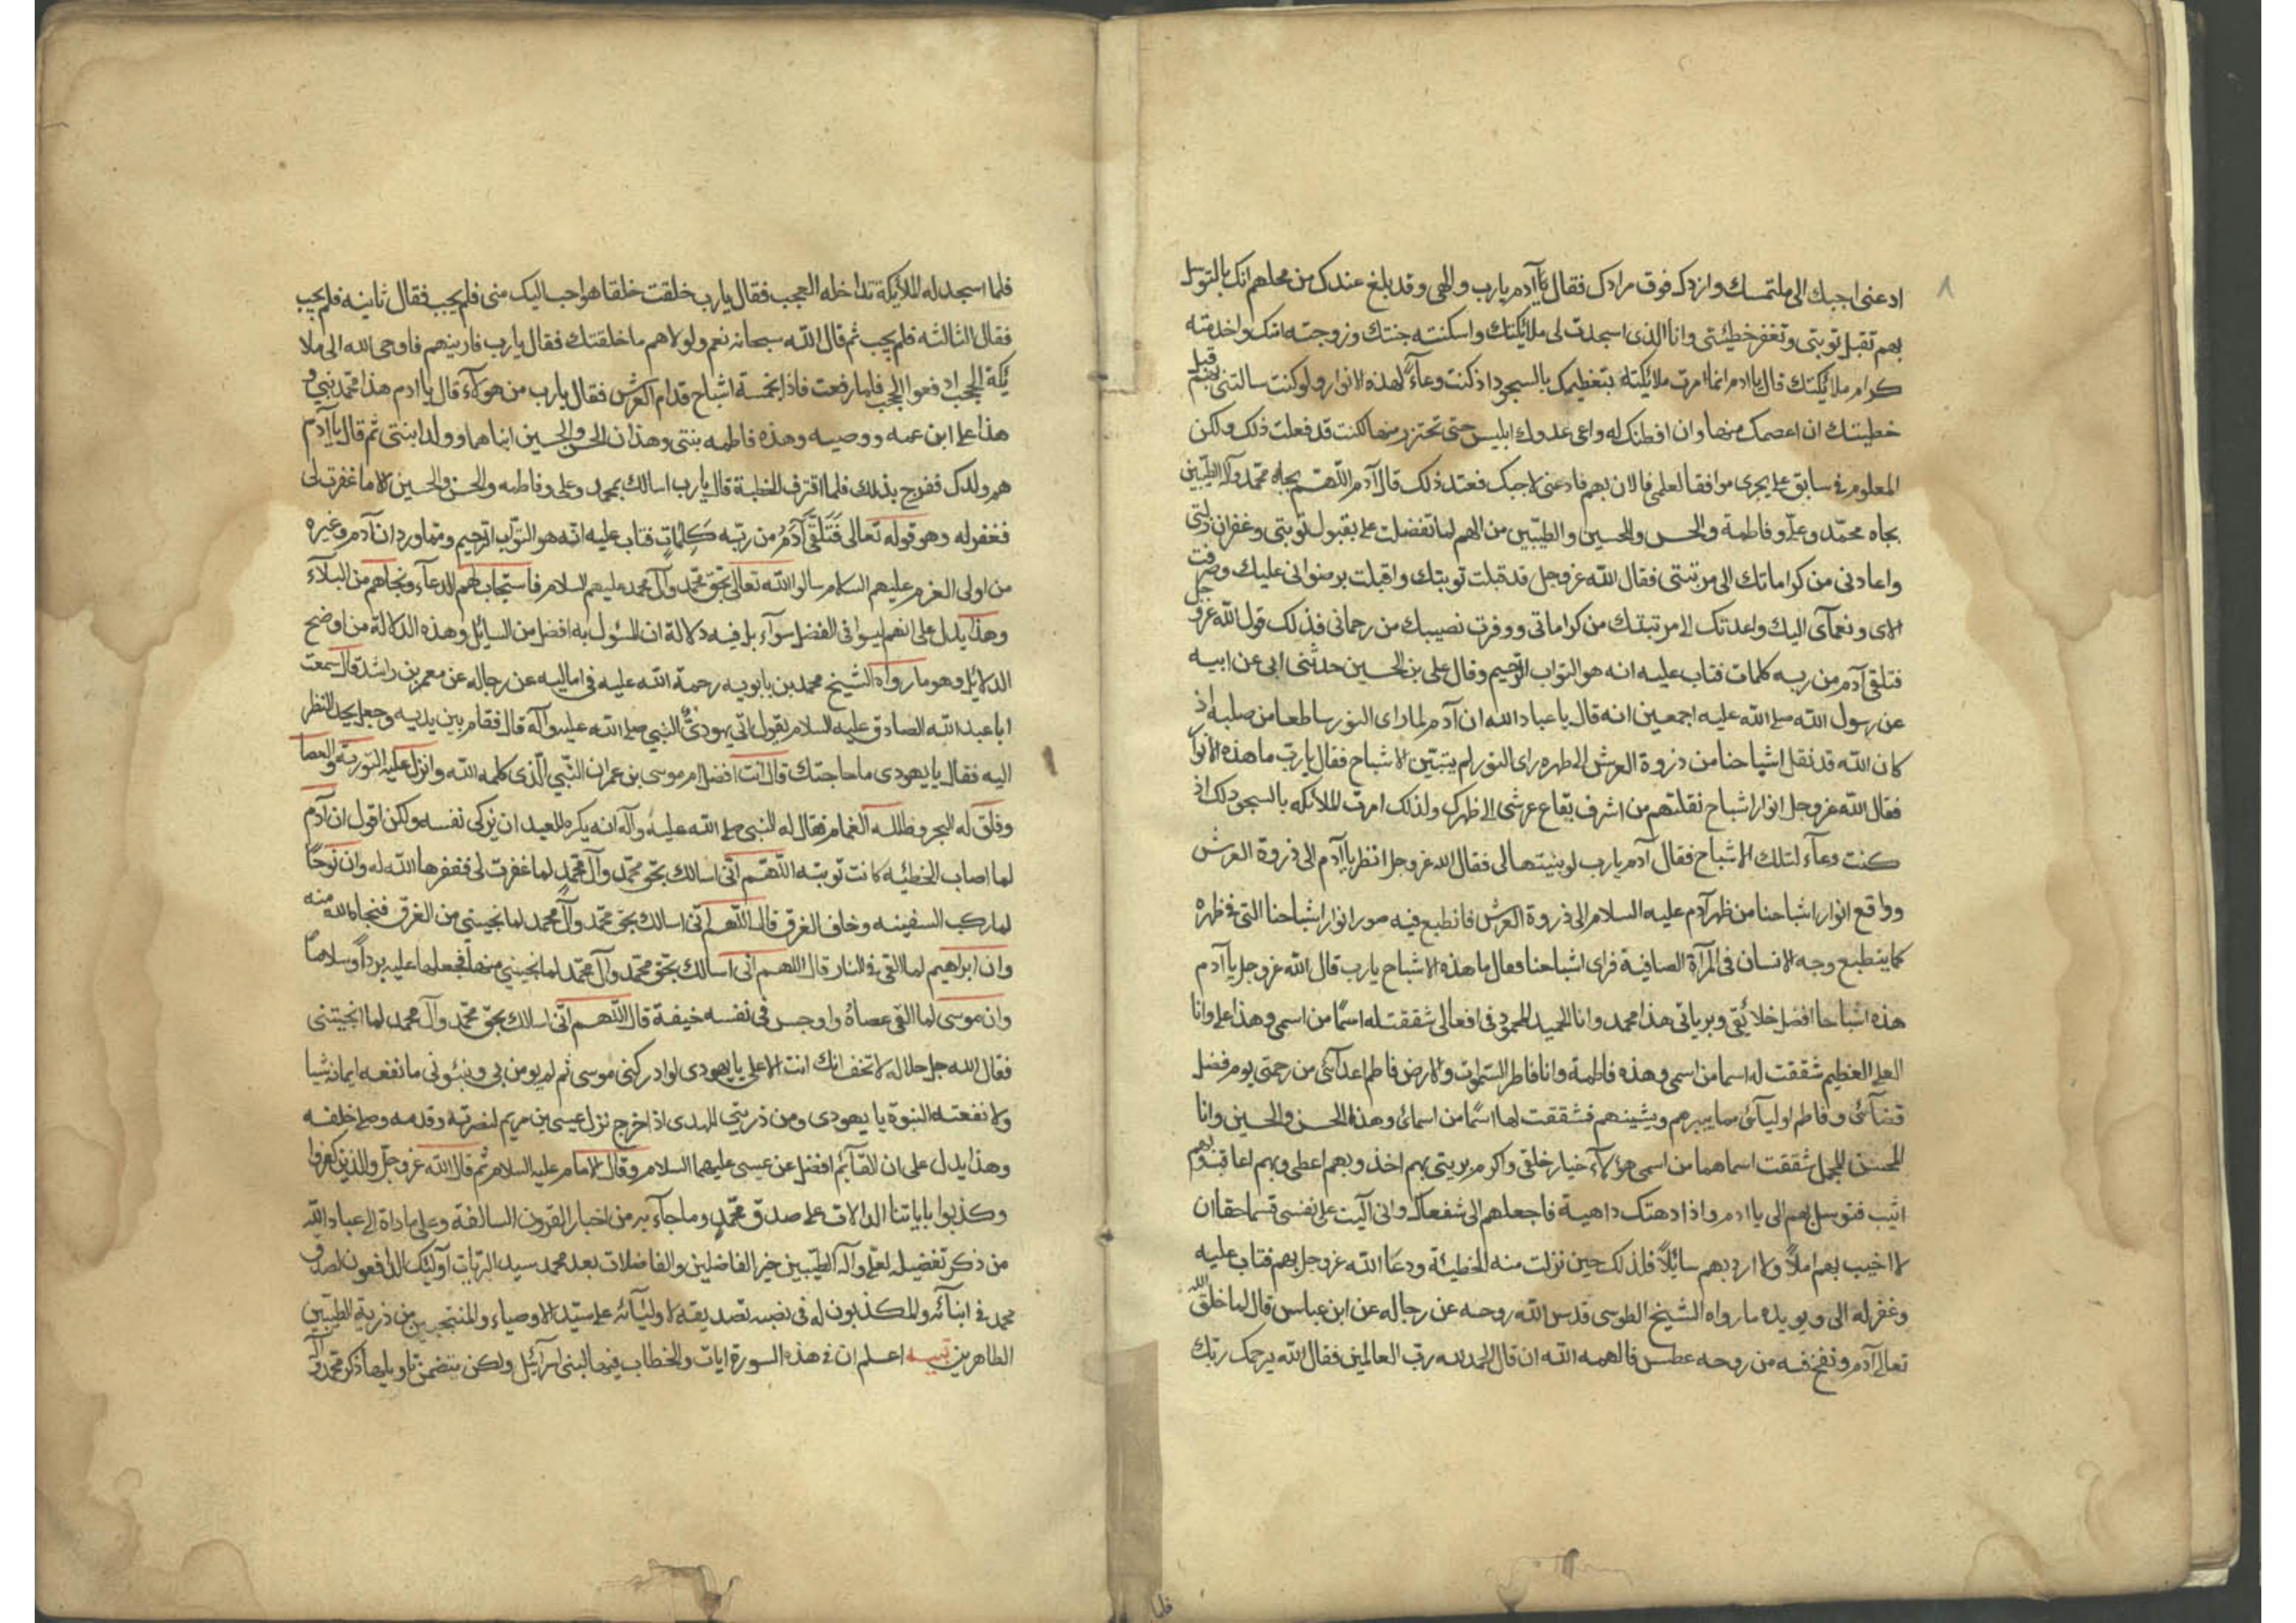 ٨
ادعنى اجبك الى ملتمسك وازدك فوق مرادك فقال يا آدم يارب والهى وقد بلغ عندك من محلهم انك بالتوسل
بهم تقبل توبتى وتغفر خطيئتى وانا الذى اسجدت لى ملائكتك واسكنته جنتك وزوجته امتك واخدمته
كرام ملائكتك قال يا ادم انما امرت ملائكته بتعظيمك بالسجود اذ كنت وعآءً لهذه الانوار ولو كنت سالتنى بهم قبل
خطيئتك ان اعصمك منها وان افطنك له واعى عدوك ابليس حتى تحترز منها لكنت قد فعلت ذلك ولكن
المعلوم فى سابق علمى يجرى موافقا لعلمى فالان بهم فادعنى لاجبك فعند ذلك قال آدم اللهم بجاه محمد وآله الطيبين
بجاه محمّد وعلى وفاطمة والحسن والحسين والطيّبين من الهم لما تفضلت على بقبول توبتى وغفران زلتى
واعادنى من كراماتك الى مرتبتى فقال الله عز وجل قد قبلت توبتك واقبلت برضوانى عليك وصرفت
الاى ونعمآى اليك واعدتك الى مرتبتك من كراماتى ووفرت نصيبك من رحماتى فذلك قول الله عز و جل
فتلقى آدم من ربه كلمات فتاب عليه انه هو التواب الرحيم وقال على بن الحسين حدثنى ابى عن ابيه
عن رسول الله صلى الله عليه اجمعين انه قال يا عباد الله ان آدم لما راى النور ساطعا من صلبه اذ
كان الله قد نقل اشباحنا من ذروة العرش الى ظهره راى النور لم يتبيّن الاشباح فقال يارب ما هذه الانوار
فقال الله عز وجل انوار اشباح نقلتهم من اشرف بقاع عرشى الى ظهرك ولذلك امرت الملائكه بالسجود لك اذ
كنت وعآء لتلك الاشباح فقال آدم يارب لو بينتها لى فقال الله عز وجل انظر يا آدم الى ذروة العرش
وواقع انوار اشباحنا من ظهر آدم عليه السلام الى ذروة العرش فانطبع فيه صور انوار اشباحنا التى فى ظهره
كما ينطبع وجه الانسان فى المرآة الصافية فراى اشباحنا فقال ما هذه الاشباح يارب قال الله عز وجل يا آدم
هذه اشباحا افضل خلائقى وبرياتى هذا محمد وانا الحميد المحمود فى افعالى شققت له اسمًا من اسمى وهذا على وانا
العلى العظيم شققت له اسما من اسمى وهذه فاطمة وانا فاطر السموات والارض فاطم اعدآئى من رحمتى يوم فصل
قضآئى وفاطم اوليآئى مما يبيرهم ويشينهم فشققت لها اسمًا من اسمائى وهذا الحسن والحسين وانا
المحسن المجمل شققت اسماهما من اسمى هؤلآء خيار خلقى واكرم بريتى بهم اخذ وبهم اعطى وبهم اعاقب وبهم
اثيب فتوسل بهم الى يا ادم واذا دهتك داهية فاجعلهم الى شفعآك وانى آليت على نفسى قسما حقا ان
لا اخيب بهم املاً ولا ارد بهم سائلاً فلذلك حين نزلت منه الخطيئة ودعَا الله عز وجل بهم فتاب عليه
وغفر له الى ويويده ما رواه الشيخ الطوسى قدس الله روحه عن رجاله عن ابن عباس قال لما خلق الله
تعالى آدم ونفخ فيه من روحه عطس فالهمه الله ان قال الحمد لله رب العالمين فقال الله يرحمك ربك
فلما
فلما اسجد له الملائكة تداخله العجب فقال يارب خلقت خلقا هو احب اليك منى فلم يجب فقال ثانيه فلم يجب
فقال الثالثه فلم يجب ثم قال الله سبحانه نعم ولولاهم ما خلقتك فقال يارب فارينهم فاوحى الله الى ملا
ئكة الحجب ادفعوا الحجب فلما رفعت فاذا بخمسة اشباح قدام العرش فقال يارب من هؤلآء قال يا ادم هذا محمد نبيى و
هذا على ابن عمه ووصيه وهذه فاطمه بنتى وهذان الحسن والحسين ابناهما وولدا بنتى ثم قال يا آدم
هم ولدك ففرح بذلك فلما اقترف الخطية قال يارب اسالك بمحمد وعلى وفاطمه والحسن والحسين الا ما غفرت لى
فغفر له وهو قوله تعالى فَتَلَقَّىَ آدَمُ من ربّه كَلِمَاتٍ فتاب عليه انه هو التوّاب الرحيم ومما ورد ان آدم وغيره
من اولى العزم عليهم السلام سالوا الله تعالى بحق محمّد وآل محمد عليهم السلام فاستجاب لهم الدعآء ونجاهم من البلآء
وهذا يدل على انهم ليسوا فى الفضل سوآء بل فيه دلالة ان المسئول به افضل من السائل وهذه الدلالة من اوضح
الدلائل وهو ما رواه الشيخ محمد بن بابويه رحمة الله عليه فى اماليه عن رجاله عن معمر بن راشد قال سمعت
ابا عبد الله الصادق عليه السلام يقول اتى يهودىٌ النبي صلى الله عليه وآله قال فقام بين يديه وجعل يحد النظر
اليه فقال يا يهودى ما حاجتك قال انت افضل ام موسى بن عمران النبّي الّذى كلمه الله وانزل عليه التورىة والعصا
وفلق له البحر وظلله الغمام فقال له النبى صلى الله عليه وآله انه يكره للعبد ان يزكى نفسه ولكن اقول ان آدم
لما اصاب الخطئيه كانت توبته اللّهم انّى اسالك بحق محمّد وآل محمّد لما غفرت لى فغفرها الله له وان نوحًا
لما ركب السفينه وخاف الغرق قال اللّهم انّى اسالك بحق محمّد وآل محمد لما نجيتنى من الغرق فنجاه الله منه
وان ابراهيم لما القى فى النار قال اللهم انى اسالك بحقّ محمّد وآل محمّد لما نجيتنى منها فجعلها عليه برداً وسلاماً
وان موسى لما القى عصاهُ واوجس فى نفسه خيفة قال اللّهم انّى اسالك بحقّ محمّد وآل محمد لما انجيتنى
فقال الله جل جلاله لا تخف انك انت الاعلى يا يهودى لو ادركنى موسى ثم لم يومن بى وبنبوتى ما نفعه ايمانه شيا
ولا نفعته النبوة يا يهودى ومن ذريتى المهدى اذا خرج نزل عيسى بن مريم لنصرته وقدمه وصلى خلفه
وهذا يدل على ان القآئم افضل عن عيسى عليهما السلام وقال الامام عليه السلام ثم قال الله عز وجلّ والذين كفروا
وكذبوا باياتنا الدالات على صدق محمّدٍ وما جآء به من اخبار القرون السالفة وعلى ما داة الى عباد الله
من ذكر تفضيله لعلى وآله الطيبين خير الفاضلين والفاضلات بعد محمد سيد البريّات اولئك الدافعون لصدق
محمد فى انبآئه والمكذبون له فى نصبه تصديقه لاوليآئه على سيّد الاوصياء والمنتجبين من ذرية الطيّبين
الطاهرين تنبيه اعلم ان فى هذه السورة ايات والخطاب فيها لبنى اسرآئيل ولكن يتضمن تاويلها ذكر محمد وآله